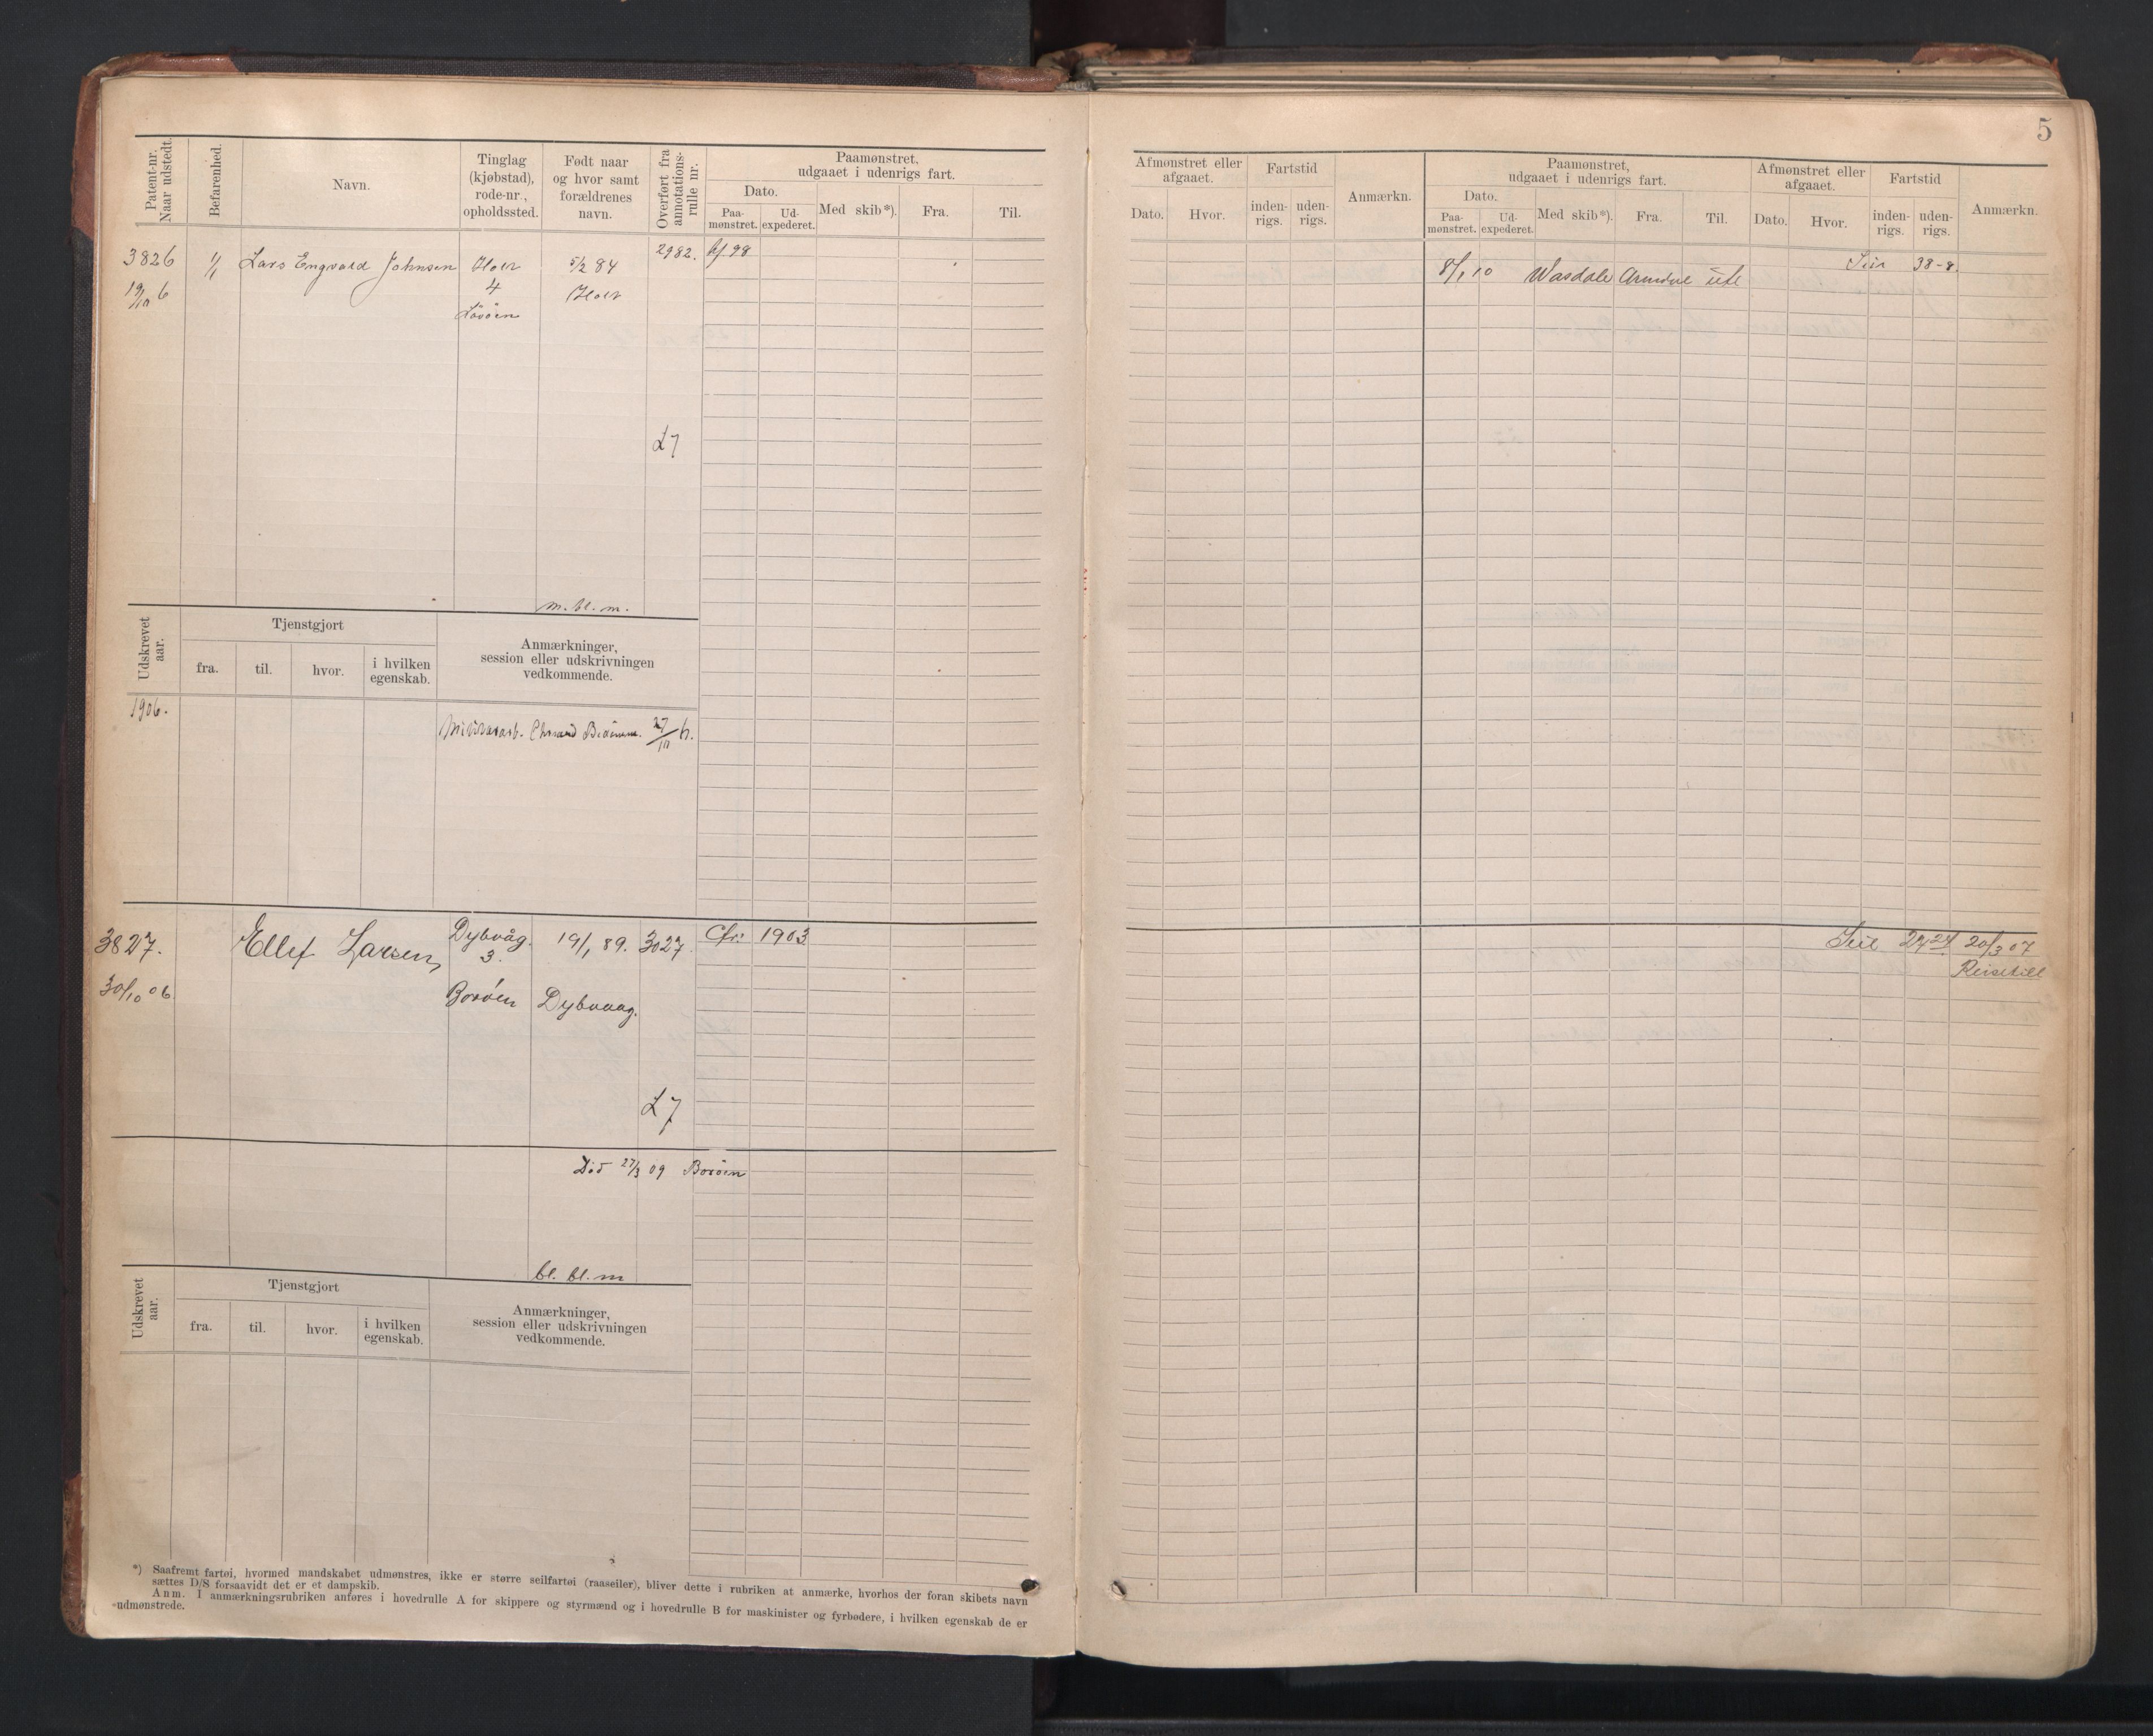 5
Patent-nr.
Naar udstedt.
Befarenhed.
Navn.
Tinglag
(kjøbstad),
rode-nr.,
opholdssted.
Født naar
og hvor samt
forældrenes
navn.
Overført fra
annotations-
rulle nr.
Paamønstret,
udgaaet i udenrigs fart.
Dato.
Paa-
mønstret.
Ud-
expederet.
Med skib*).
Fra.
Til.
3826
1/1
Lars Engvald Johnsen
Holt
5/2 84
2982.
19/10 6
4
Holt
Løvøen
L7
m. bl. m.
Udskrevet
aar.
Tjenstgjort
fra.
til.
hvor.
i hvilken
egenskab.
Anmærkninger,
session eller udskrivningen
vedkommende.
1906.
27/10 6.
3827.
Ellef Larsen,
Dybvåg.
3.
19/1 89.
3027
Cfr. 1903
30/10 06
Borøen
Dybvaag.
L7
Död 27/3 09 Borøen
bl. bl. m
Udskrevet
aar.
Tjenstgjort
fra.
til.
hvor.
i hvilken
egenskab.
Anmærkninger,
session eller udskrivningen
vedkommende.
*) Saafremt fartøi, hvormed mandskabet udmønstres, ikke er større seilfartøi (raaseiler), bliver dette i rubriken at anmærke, hvorhos der foran skibets navn
sættes D/S forsaavidt det er et dampskib.
Anm. I anmærkningsrubriken anføres i hovedrulle A for skippere og styrmænd og i hovedrulle B for maskinister og fyrbødere, i hvilken egenskab de er
udmønstrede.
Afmønstret eller
afgaaet.
Dato.
Hvor.
Fartstid
inden-
rigs.
uden-
rigs.
Anmærkn.
Paamønstret,
udgaaet i udenrigs fart.
Dato.
Paa-
mønstret.
Ud-
expederet.
Med skib*).
Fra.
Til.
Afmønstret eller
afgaaet.
Dato.
Hvor.
Fartstid
inden-
rigs.
uden-
rigs.
Anmærkn.
38-8.
8/1 10 Wasdale Arendal ute
Seil 20/3 07